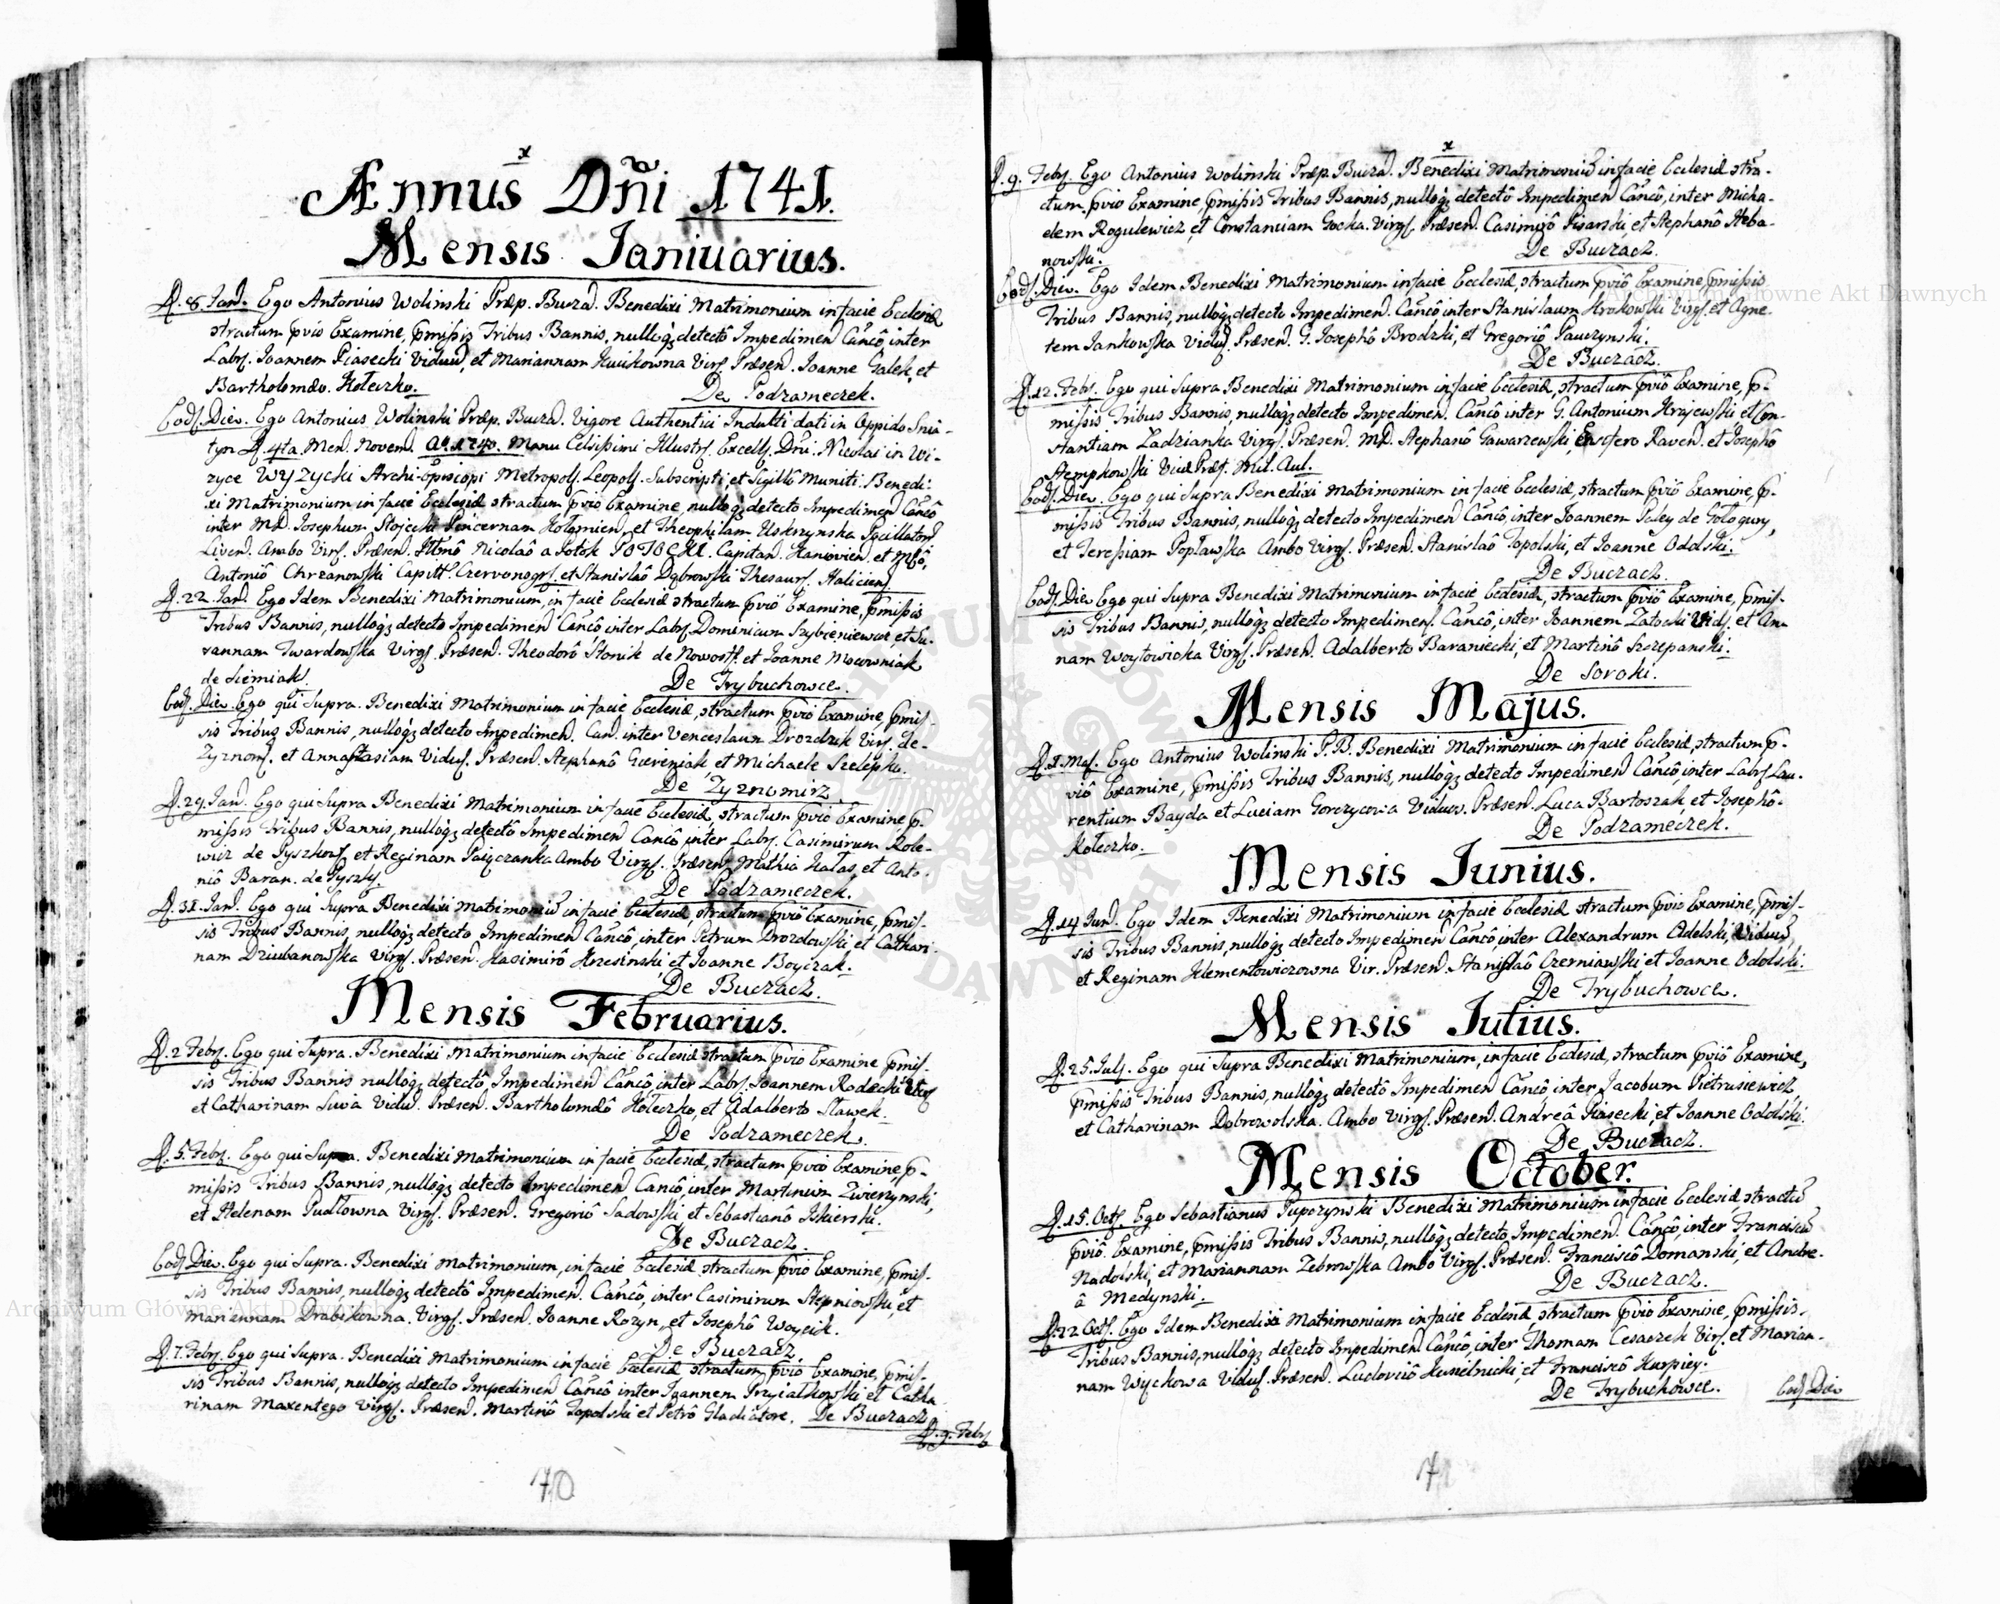 Annus Dñi 1741.
Mensis Ianiuarius.
D. 8. Jan. Ego Antonius Wolinski Præp. Buczac. Benedixi Matrimonium in facie Ecclesiæ
stractum pvio Examine, pmissis Tribus Bannis, nulloq; detecto Impedimen Canco, inter
Labs. Joannem Piasecki Viduum, et Mariannam Kwikowna Virg. Præsen. Joanne Galek, et
Bartholomæo. Koleczko.
De Podzameczek.
Eod. Die. Ego Antonius Wolinski Præp. Bucza. Vigore Authentici Indulti dati in Oppido Snia-
tyn D. 4ta Men. Novem. Ao. 1740. Manu Celsissimi Illustr. Excell. Dni. Nicolai in Wi-
zyce WYZYCKI Archi-Episcopi Metropol. Leopol. Subscripti et Sigillo Muniti Benedi-
xi Matrimonium in facie Ecclesiæ stractum pvio Examine, nulloq; detecto Impedimen Canco
inter MD. Josephum Stojecki Pincernam Kolomien, et Theophilam Uskrzynska Pocillator
Liven. Ambo Virg. Præsen. Illmo Nicolao a Potok POTOCKI. Capitan. Kaniovien. et Mfco.
Antonio Chrzanowski Capitt. Czervonogr. et Stanislao Dąbrowski Thesaur. Halicien
D. 22. Jan. Ego Idem Benedixi Matrimonium, in facie Ecclesiæ stractum pvio Examine, pmissis
Tribus Bannis, nulloq; detecto Impedimen Canco inter Lab. Dominicum Szybieniewicz, et Su-
sannam Twardowska Virg. Præsen. Theodoro Slonik de Nowost. et Joanne Mocowniak
de Siemiak.
De Trybuchowce.
Eod. Die. Ego qui Supra. Benedixi Matrimonium in facie Ecclesiæ, stractum pvio Examine, pmis-
sis Tribus Bannis, nulloq; detecto Impedimen. Can. inter Venceslaum Drozdzik Virg. de
Zyznom. et Annastasiam Vidu. Præsen. Stephano et Michaele Szelepko.
De Zyznomirz
D. 29. Jan. Ego qui Supra Benedixi Matrimonium in facie Ecclesiæ, stractum pvio Examine p-
missis Tribus Bannis, nulloq; detecto Impedimen Canco inter Lab. Casimirum Role-
wicz de Pyszkow. et Reginam Paiączanka Ambo Virg. Præsen. Mathia Halas, et Anto-
nio Baran. de Pyszky.
De Podzameczek.
D. 31. Jan. Ego qui Supra Benedixi Matrimoniu in facie Ecclesiæ, stractum pvio Examine, pmis-
sis Tribus Bannis, nulloq; detecto Impedimen Canco, inter Petrum Drozdowski et Cathari-
nam Dziubanowska Virg. Præsen. Kasimiro Krzesinski, et Joanne Boyczak.
De Buczacz.
Mensis Februarius.
D. 2 Febr. Ego qui Supra. Benedixi Matrimonium in facie Ecclesiæ stractum pvio Examine pmis-
sis Tribus Bannis nulloq; detecto, Impedimen Canco, inter Lab. Joannem Radecki Virg
et Catharinam Suwa Vidu. Præsen. Bartholomæo Koleczko, et Adalberto Slawek.
De Podzameczek.
D. 5. Febr. Ego qui Supra. Benedixi Matrimonium in facie Ecclesiæ, stractum pvio Examine, p-
missis Tribus Bannis, nulloq; detecto Impedimen Canco, inter Martinum Zwierzynski,
et Helenam Pudlowna Virg. Præsen. Gregorio Sadowski et Sebastiano Iskierski.
De Buczacz.
Eod. Die. Ego qui Supra. Benedixi Matrimonium, in facie Ecclesiæ stractum pvio Examine, pmis-
sis Tribus Bannis, nulloq; detecto Impedimen. Canco, inter Casimirum Stepniowski, et
Mariannam Drabikowna. Virg. Præsen. Joanne Rozyn, et Josepho Woycik.
De Buczacz.
D. 7. Febr. Ego qui Supra. Benedixi Matrimonium in facie Ecclesiæ stractum pvio Examine, pmis-
sis Tribus Bannis, nulloq; detecto Impedimen Canco inter Joannem Przyialkowski et Catha
rinam Maxentego Virg. Præsen. Martino Topolski et Petro Gladiatore. De Buczacz
D. 9. Febr
70
D. 9. Febr. Ego Antonius Wolinski Præp. Bucza. Benedixi Matrimoniu in facie Ecclesiæ stra-
ctum pvio Examine, pmissis Tribus Bannis, nulloq; detecto Impedimen Canco, inter Micha-
elem Rogulewicz, et Constantiam Gocka. Virg. Præsen. Casimiro Pisarski, et Stephano Heba-
nowski.
De Buczacz.
Eod. Die. Ego Idem Benedixi Matrimonium in facie Ecclesiæ, stractum pvio Examine, pmissis
Tribus Bannis, nulloq; detecto Impedimen. Canco inter Stanislaum Krokowski Virg. et Agne-
tem Jankowska Vidu. Præsen. G. Josepho Brodzki, et Gregorio Pawzynski.
De Buczacz.
D. 12. Febr. Ego qui Supra Benedixi Matrimonium in facie Ecclesiæ, stractum pvio Examine, p-
missis Tribus Bannis nulloq; detecto Impedimen. Canco inter G. Antonium Krzyewski et Con-
stantiam Ładzianka Virg. Præsen. MD. Stephano Gawarzewski, Ensifero Raven. et Josepho
Stempkowski Vice Præf. Mil. Aul.
Eod. Die. Ego qui Supra Benedixi Matrimonium in facie Ecclesiæ, stractum pvio Examine, p-
missis Tribus Bannis, nulloq; detecto Impedimen Canco, inter Joannem Paley de Gologury,
et Teressiam Poplawska Ambo Virg. Præsen. Stanislao Topolski, et Joanne Odolski.
De Buczacz.
Eod. Die. Ego qui Supra Benedixi Matrimonium in facie Ecclesiæ, stractum pvio Examine, pmis-
sis Tribus Bannis, nulloq; detecto Impedimen. Canco, inter Joannem Załocki Vid. et An-
nam Woytowicka Virg. Præsen. Adalberto Baraniecki, et Martino Szczepanski.
De Soroki.
Mensis Majus.
D. 1. Maj. Ego Antonius Wolinski P. B. Benedixi Matrimonium in facie Ecclesiæ, stractum p-
vio Examine, pmissis Tribus Bannis, nulloq; detecto Impedimen Canco, inter Lab. Lau-
rentium Bayda et Luciam Gorczycowa Viduos. Præsen. Luca Bartoszak et Josepho-
Koleczko.
De Podzameczek.
Mensis Junius.
D. 14 Jun. Ego Idem Benedixi Matrimonium in facie Ecclesiæ stractum pvio Examine, pmis-
sis Tribus Bannis, nulloq; detecto Impedimen Canco inter Alexandrum Odolski, Viduu
et Reginam Klementowiczowna Vir. Præsen. Stanislao Czerniawski et Joanne Odolski.
De Trybuchowce.
Mensis Julius.
D. 25. Jul. Ego qui Supra Benedixi Matrimonium, in facie Ecclesiæ, stractum pvio Examine,
pmissis Tribus Bannis, nulloq; detecto Impedimen Canco, inter Jacobum Pietrusiewicz,
et Catharinam Dobrowolska. Ambo Virg. Præsen. Andrea Piasecki, et Joanne Odolski.
De Buczacz.
Mensis October.
D. 15. Oct. Ego Sebastianus Pupczynski Benedixi Matrimonium in facie Ecclesiæ, stractu
pvio. Examine, pmissis Tribus Bannis, nulloq; detecto, Impedimen. Canco, inter Franciscu
Nadolski, et Mariannam Zebrowska Ambo Virg. Præsen. Francisco Domanski, et Andre-
a Medynski.
De Buczacz.
D. 22 Oct. Ego Idem Benedixi Matrimonium in facie Ecclesiæ, stractum pvio Examine, pmissis.
Tribus Bannis, nulloq; detecto Impedimen Canco, inter Thomam Cesarzek Vir. et Marian-
nam Wyckowa Vidu. Præsen. Ludovico Kusielnicki, et Francisco Kurpiey.
De Trybuchowce.
Eod. Die
71
Archiwum Główne Akt Dawnych
Archiwum Główne Akt Dawnych